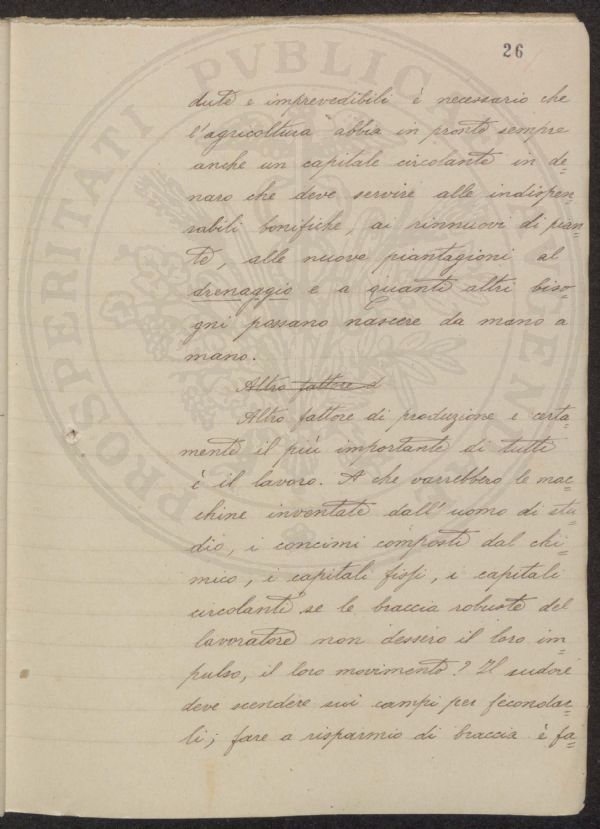 26
dute e imprevedibili è necessario che
l'agricoltura abbia in pronto sempre
anche un capitale circolante in de=
naro che deve servire alle indispen=
sabili bonifiche, ai rinnuovi di pian=
te, alle nuove piantagioni al
drenaggio e a quanti altri biso=
gni possano nascere da mano a
mano.
Altro fattore d
Altro fattore di produzione e certa=
mente il più importante di tutti
è il lavoro. A che varrebbero le mac=
chine inventate dall'uomo di stu=
dio, i concimi composti dal chi=
mico, i capitali fissi, i capitali
circolanti se le braccia robuste del
lavoratore non dessero il loro im=
pulso, il loro movimento? Il sudore
deve scendere sui campi per fecondar=
li; fare a risparmio di braccia è fa=
PROSPERITATI PVBLICAE AVGENDAE